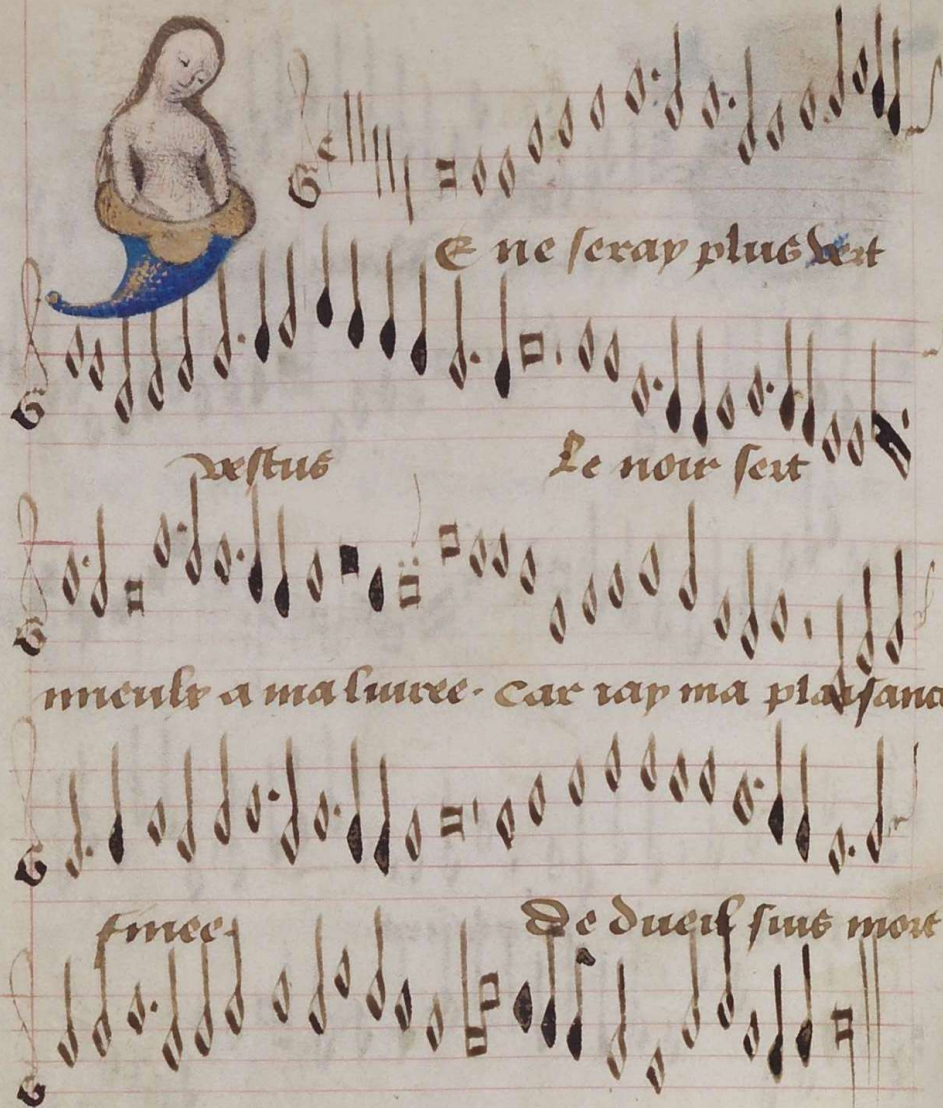 E ne seray plus vert
vestus Le noir sert
mieulx a ma livree. Car iay ma plaisanc
finee.
De dueil suis mort